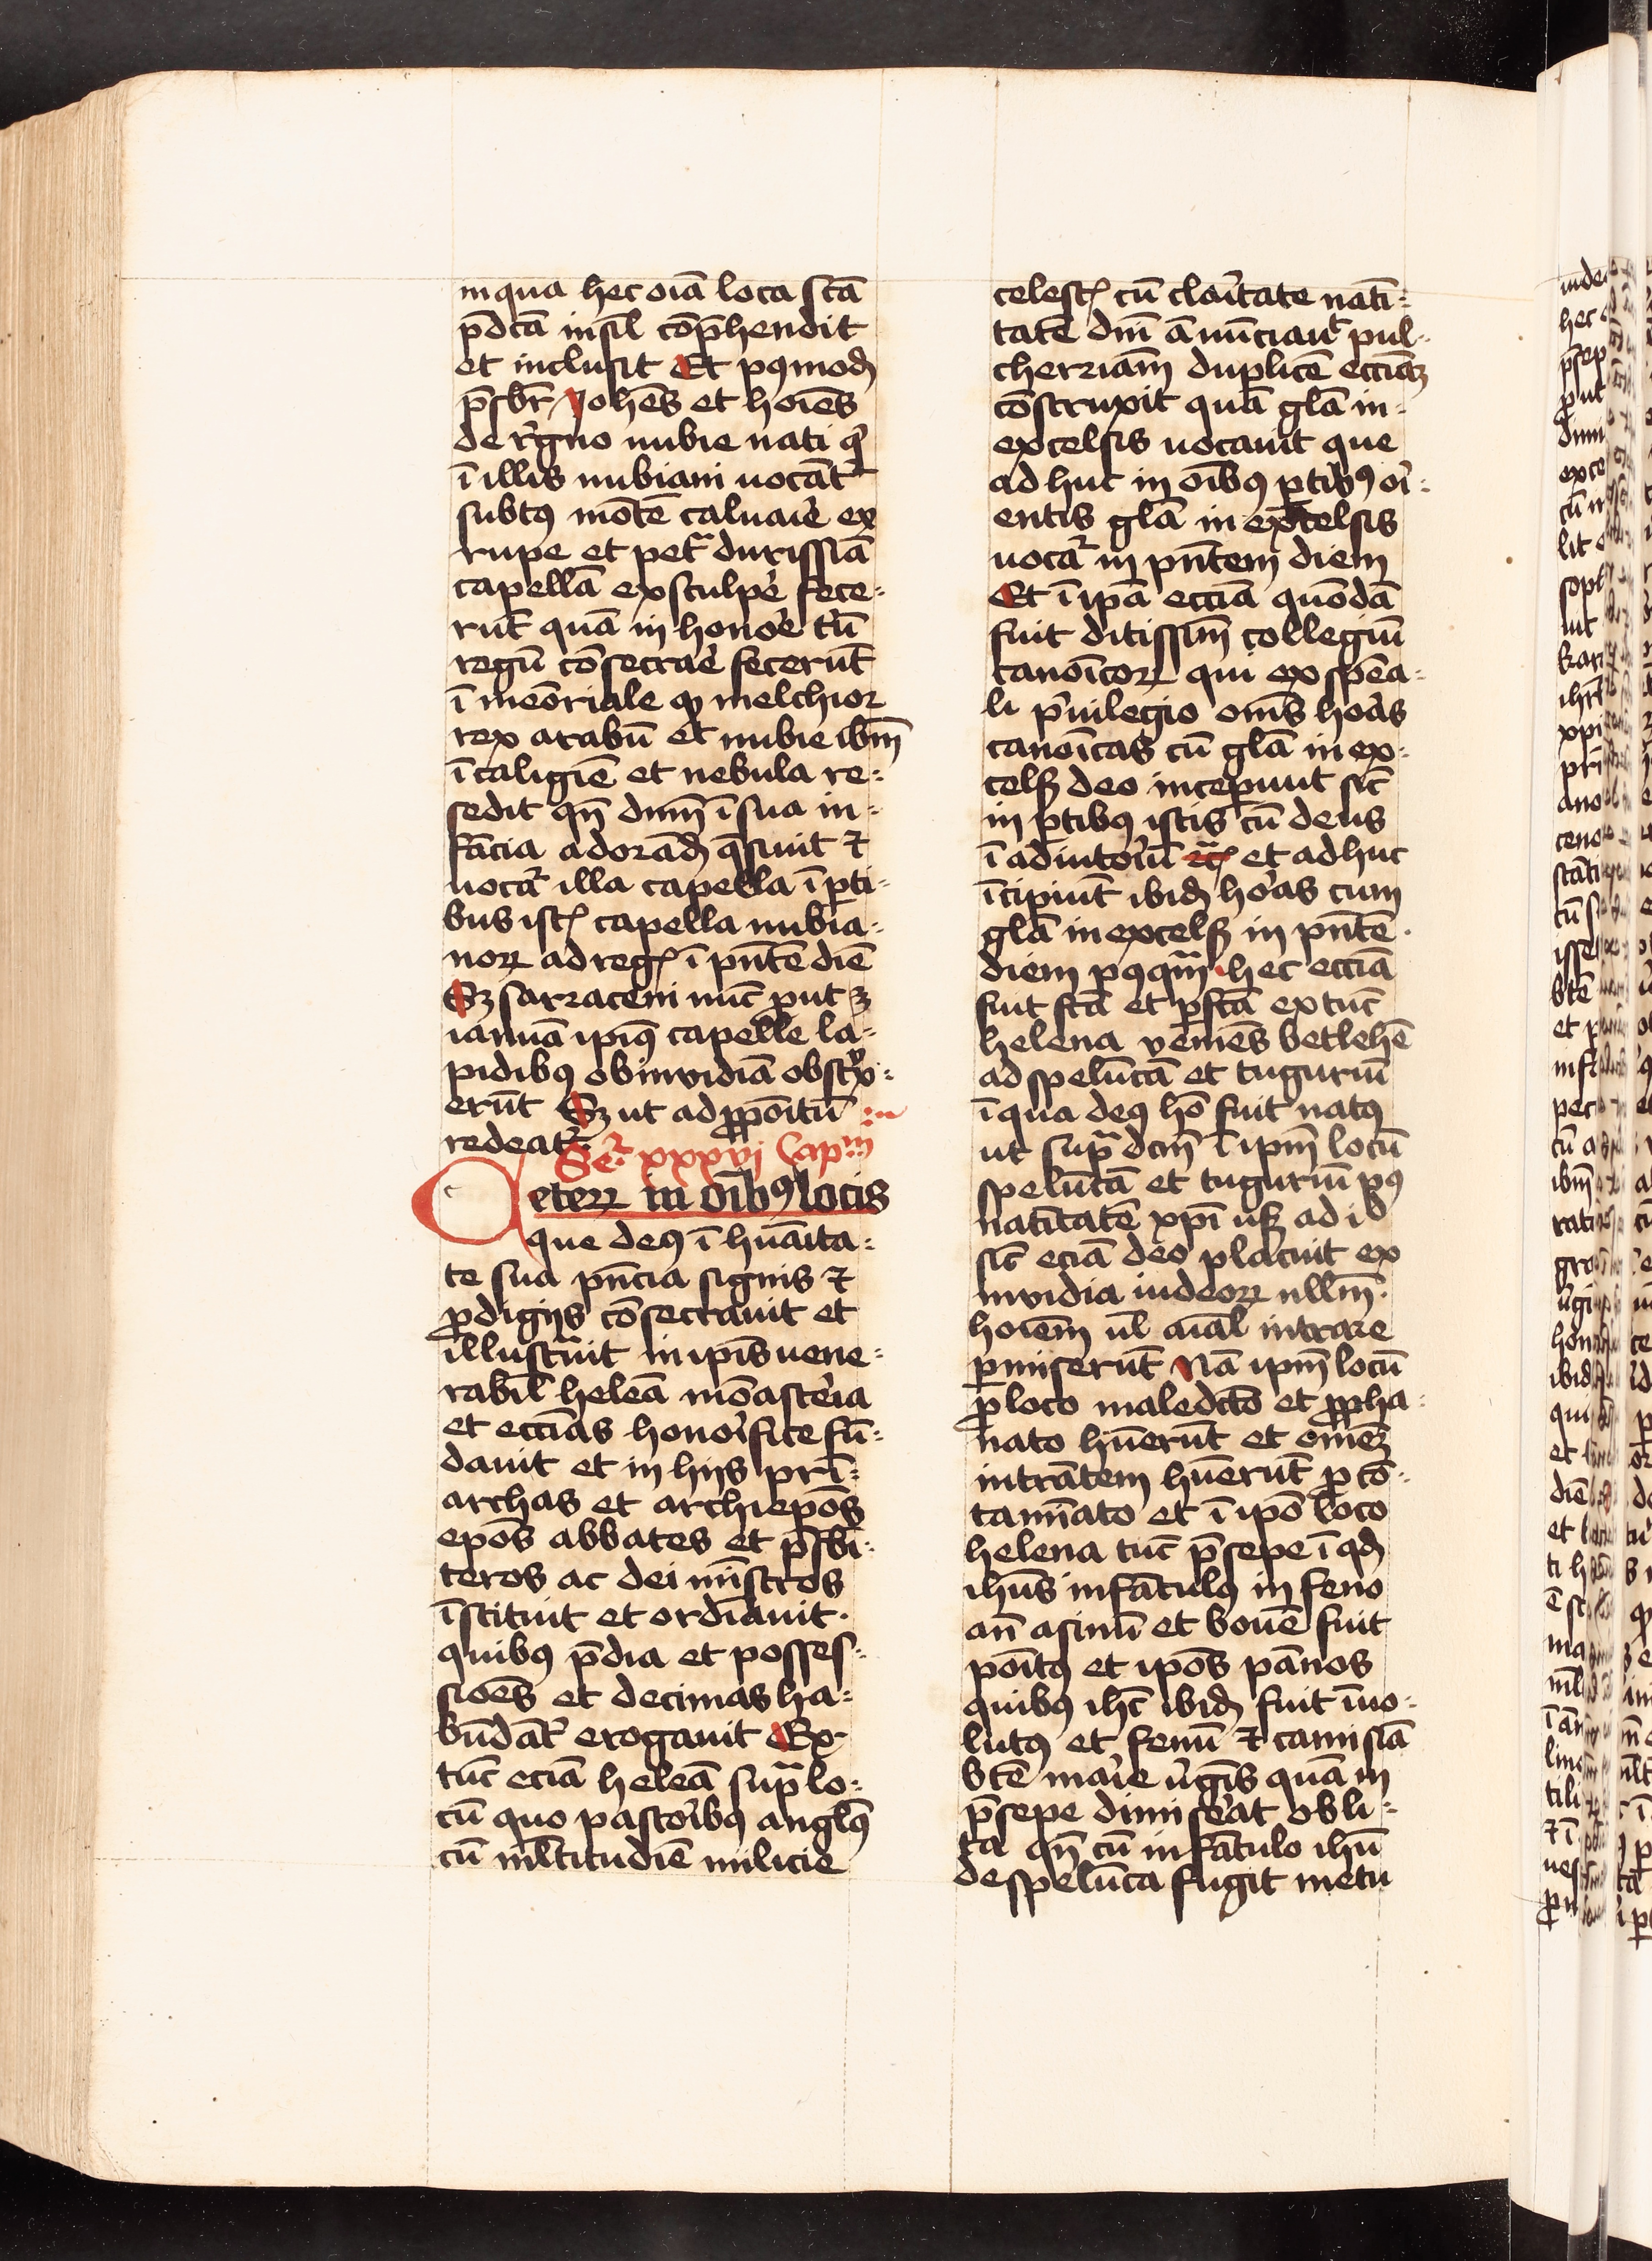 in qua hec oīa loca sc̄a
p̄dc̄a insil̄ cōp̄hendit
et inclusit Et pꝰmod̄
p̄sbr̄ Yohēs et hoīes
de regno nubie nati q̄
ī illis nubiani uocāt᷑
subtꝰ mōtē caluarie ex
rupe et petra durissīa
capellā exsculpe᷑ fece-
rūt quā in honore᷑ triū
regū cōsecrare᷑ fecerūt
ī meōriale qꝫ melchior
rex arabū et nubie ibm̄
ī caligīe et nebula re-
sedit qn̄ dnm̄ ī sua in-
fācia adorād̄ q̄siuit ⁊
uocat᷑ illa capella ī ꝑti-
bus istꝭ capella nubia-
noꝝ ad regꝭ ī pn̄tē diē
Sꝫ sarraceni nūc ꝓut ꝫ
ianuā ipīꝰ capelle la-
pidibꝰ ob inuidiā obstrx̄-
erūt Sꝫ ut ad ꝓpoītū
redeat᷑
Se᷑ xxxvi Capm̄
Ceteꝝ in oībꝰ locis
que deꝰ ī hūaīta-
te sua pn̄cia signis ⁊
ꝓdigijs cōsecrauit et
illustrauit in ipīs uene-
rabil̄ heleā mōasteria
et ecc̄ias honorifice fū-
dauit et in hijs prī-
archas et archiepōs
epōs abbates et p̄sbī-
teros ac dei mīstros
īstituit et ordīauit.
quibꝰ p̄dia et posses-
sioēs et decimas ha-
būdāt᷑ erogauit Ex-
tūc eciā heleā supra lo-
cū quo pastoribꝰ anglꝰ
cū ml̄titudīe milicie
celestꝭ cū claritate natī-
tatē dnī ānūciauit pul-
cherriām duplicē ecc̄iaꝫ
cōstruxit quā glā in-
excelsis uocauit que
ad huc in oībꝰ ꝑtibꝰ ori-
entis glā in excelsis
uocat᷑ in pn̄tem diem
Et ī ipā ecc̄ia quōdā
fuit ditissim̄ collegiū
canoīcoꝝ qui ex spēa-
li pruilegio om̄s horas
canoīcas cū glā in ex-
celsꝭ deo incepiuit sīc
in ꝑtibꝰ istis cū deus
ī adiutoriū ⁊cꝭ et ad huc
īcipiūt ibid̄ horas cum
glā in excelsꝭ in pn̄tē.
diem pꝰqm̄ hec ecc̄ia
fuit fc̄a et ꝑfc̄a ex tūc
helena veniēs betlehē
ad spelūcā et tuguriū
ī qua deꝰ hō fuit natꝰ
ut supra dcm̄ ī ipm̄ locū
spelūcā et tuguriū pꝰ
natītatē xpī usꝫ ad id
sic eciā deo placuit ex
inuidia iudeoꝝ nllm̄.
hoīem ul̄ aīal intrare
ꝑmiserūt Nā ipm̄ locū
ꝓ loco maledc̄to et ꝓpha-
nato hūerūt et om̄eꝫ
intrātem hūerūt ꝓ cō-
tamīato et ī ipō loco
helena tūc p̄sepe ī qd̄
ihūs infātulꝰ in feno
an̄ asinū et bouē fuit
poītꝰ et ipōs pānos
quibꝰ ihc̄ ibid̄ fuit īuo-
lutꝰ et fenū ⁊ camisiā
btē marie ūgīs quā in
p̄sepe dimiserat obli-
ta qn̄ cū infātulo ihū
de spelūca fugit metu